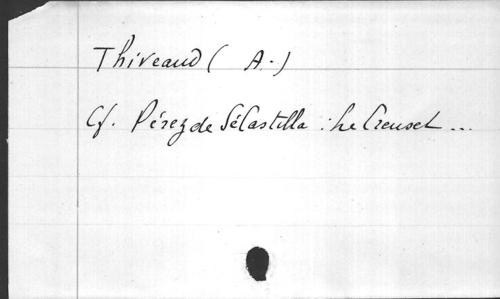 Thiveaud ( A.)
Cf. Pérez de Sécastilla : Le Creuset ...